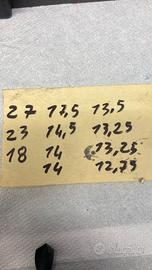 27 13,5 13,5
23 14,5 13,25
18 14 13,25
14 12,75